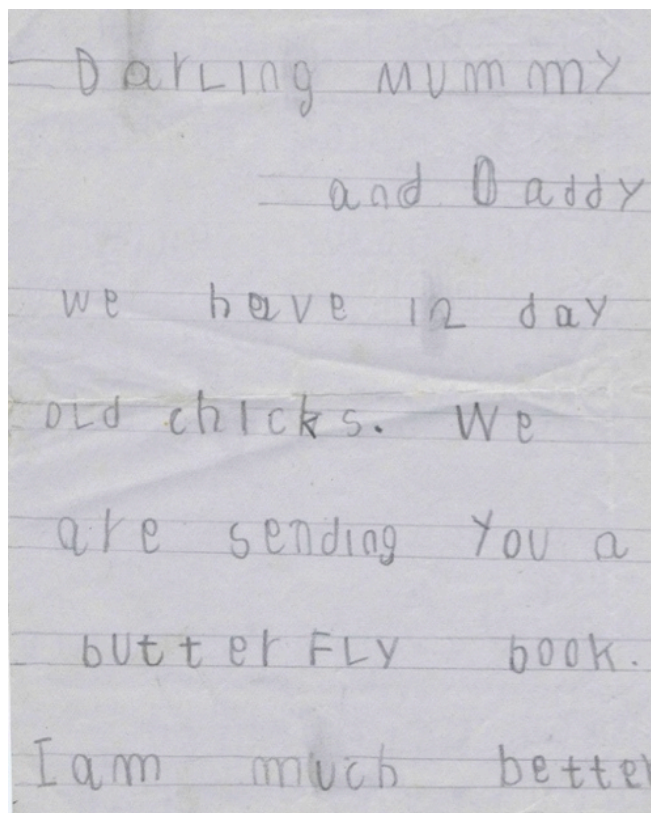 DarLing mummy
and Daddy
we have 12 day
oLd chIcks. We
are sending You a
butterFLY book.
I am much better